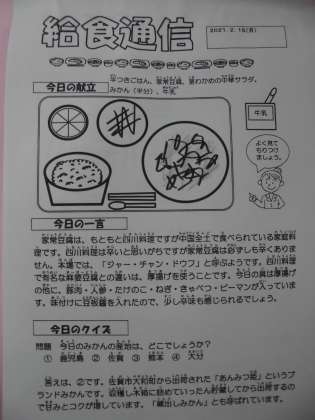 給食通信
2021.2.15(月)
今日の献立
麦つきごはん、家常豆腐、茎わかめの中華サラダ、
みかん(半分)、牛乳
牛乳
よく見て
もりつけ
ましょう。
今日の一言
家常豆腐は、もともと四川料理ですが中国全土で食べられている家庭料
理です。四川料理は辛いと思いがちですが家常豆腐は必ずしも辛くありま
せん。本場では、「ジャー・チャン・ドウフ」と呼ぶようです。四川料理
で有名な麻婆豆腐との違いは、厚揚げを使うことです。今日の具は厚揚げ
の他に、豚肉・人参・たけのこ・ねぎ・きゃべつ・ピーマンが入っていま
す。味付けに豆板醤を入れたので、少し辛味も感じられるでしょう。
今日のクイズ
問題 今日のみかんの産地は、どこでしょうか?
① 鹿児島 ② 佐賀 ③ 熊本 ④ 大分
答えは、②です。佐賀市大和町から出荷された「あんみつ姫」というブ
ランドみかんです。収穫し木箱に詰めていったん貯蔵してから出荷するの
で甘みとコクが増しています。「蔵出しみかん」とも呼ばれています。